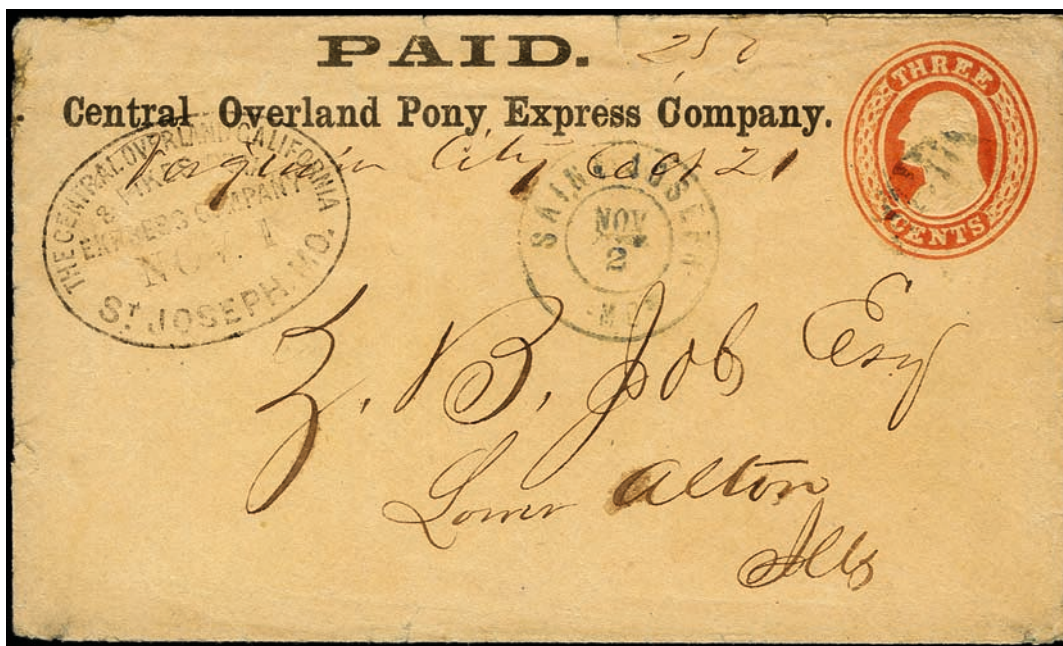 PAID. 250
THREE CENTS
Central Overland Pony Express Company.
Virginia City Oct 21
THE CENTRAL OVERLAND CALIFORNIA
&
EXPRESS COMPANY
NOV 1
ST JOSEPH. MO.
SAINT JOSEPH
NOV
2
MO
Z. B. Job Esq
Lower Alton
Ills